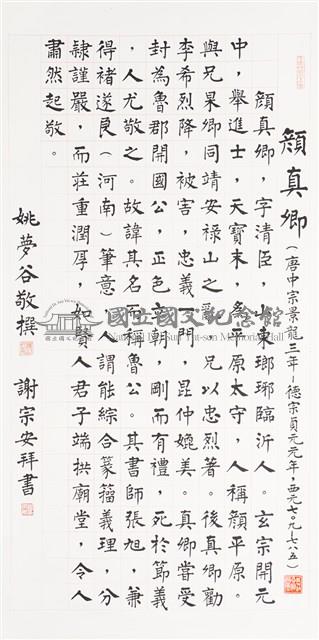 顏真卿（唐中宗景龍三年－德宗貞元元年，西元七〇九－七八五）
顏真卿，字清臣，山東瑯琊臨沂人。玄宗開元
中，舉進士，天寶末，為平原太守，人稱顏平原。
與兄杲卿同靖安祿山之亂，兄以忠烈著。後真卿勸
李希烈降，被害，忠義一門，昆仲媲美。真卿嘗受
封為魯郡開國公，正色立朝，剛而有禮，死於節義
，人尤敬之。故諱其名而稱魯公。其書師張旭，兼
得褚遂良（河南）筆意，人謂能綜合篆籀義理，分
隸謹嚴，而莊重潤厚，如賢人君子端拱廟堂，令人
肅然起敬。
姚夢谷敬撰　謝宗安拜書
國立國父紀念館
National Dr. Sun Yat-sen Memorial Hall